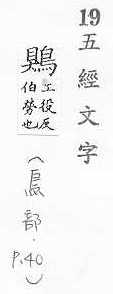 19 五經文字
鶪
工役反
伯勞也
(鳥部．P.40)